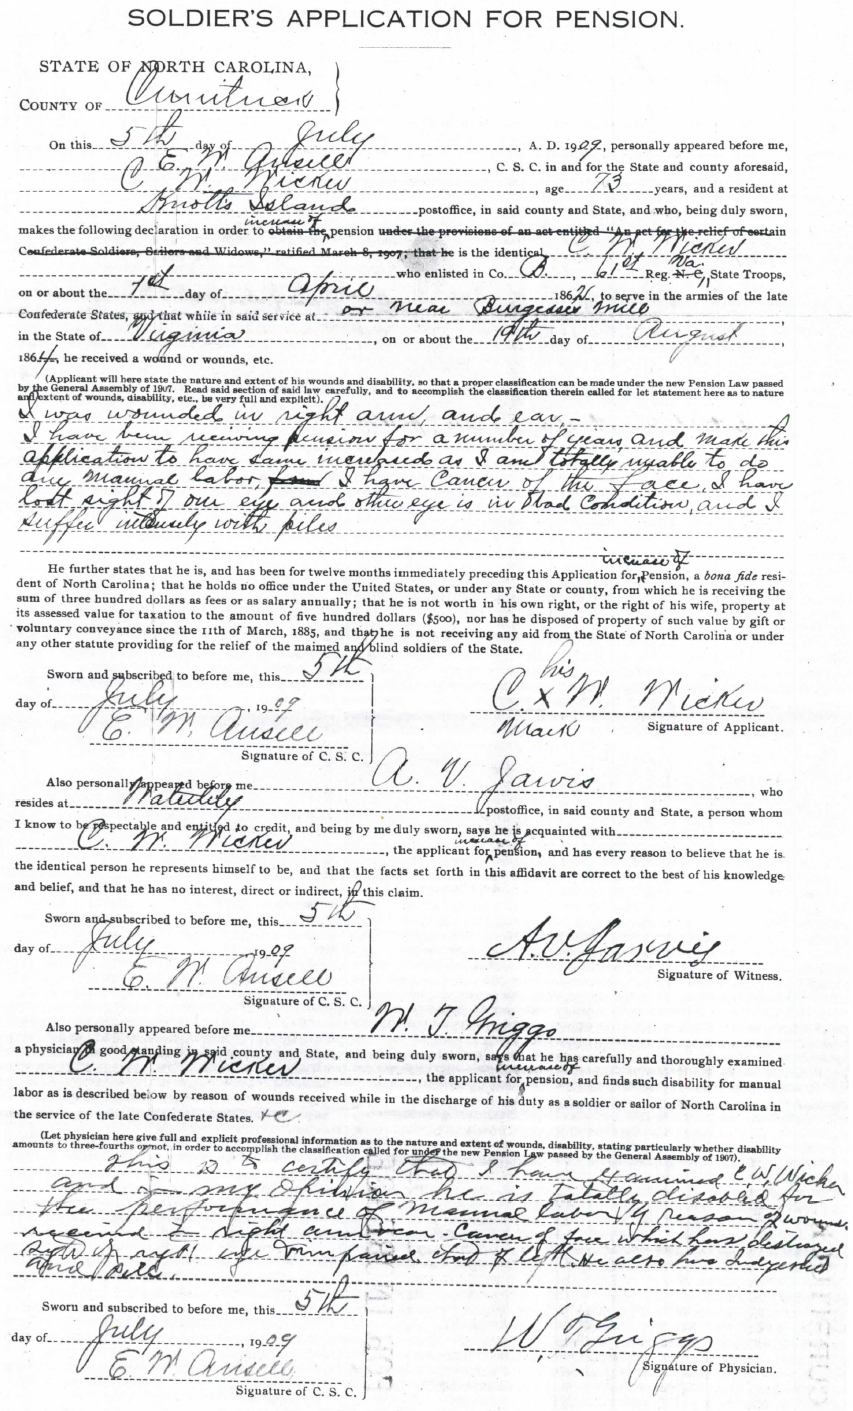 SOLDIER'S APPLICATION FOR PENSION.
STATE OF NORTH CAROLINA,
COUNTY OF Currituck
On this 5th day of July, A. D. 1909, personally appeared before me,
E. W. Ansell, C. S. C. in and for the State and county aforesaid,
C. W. Wicker, age 73 years, and a resident at
Knotts Island postoffice, in said county and State, and who, being duly sworn,
makes the following declaration in order to obtain the increase of pension under the provisions of an act entitled "An act for the relief of certain
Confederate Soldiers, Sailors and Widows," ratified March 8, 1907; that he is the identical C. W. Wicker
who enlisted in Co. B, 61st Reg. N. C. Va, State Troops,
on or about the 1st day of April 1862, to serve in the armies of the late
Confederate States, and that while in said service at or near Burgesses Mill
in the State of Virginia, on or about the 19th day of August
1864, he received a wound or wounds, etc.
(Applicant will here state the nature and extent of his wounds and disability, so that a proper classification can be made under the new Pension Law passed
by the General Assembly of 1907. Read said section of said law carefully, and to accomplish the classification therein called for let statement here as to nature
and extent of wounds, disability, etc., be very full and explicit).
I was wounded in right arm, and ear,-
I have been reciving pension for a number of years and make this
application to have same increased as I am totally unable to do
any manual labor, I have Cancer of the face, I have
lost sight of one eye and other eye is in bad Condition, and I
suffer intensely with piles
He further states that he is, and has been for twelve months immediately preceding this Application for increase of Pension, a bona fide resi-
dent of North Carolina; that he holds no office under the United States, or under any State or county, from which he is receiving the
sum of three hundred dollars as fees or as salary annually; that he is not worth in his own right, or the right of his wife, property at
its assessed value for taxation to the amount of five hundred dollars ($500), nor has he disposed of property of such value by gift or
voluntary conveyance since the 11th of March, 1885, and that he is not receiving any aid from the State of North Carolina or under
any other statute providing for the relief of the maimed and blind soldiers of the State.
Sworn and subscribed to before me, this 5th
day of July, 1909
E. W. Ansell
Signature of C. S. C.
his
C. x W. Wicker
mark
Signature of Applicant.
Also personally appeared before me A. V. Jarvis, who
resides at Waterlily postoffice, in said county and State, a person whom
I know to be respectable and entitled to credit, and being by me duly sworn, says he is acquainted with
C. W. Wicker, the applicant for increase of pension, and has every reason to believe that he is
the identical person he represents himself to be, and that the facts set forth in this affidavit are correct to the best of his knowledge
and belief, and that he has no interest, direct or indirect, in this claim.
Sworn and subscribed to before me, this 5th
day of July 1909
E. W. Ansell
Signature of C. S. C.
A. V. Jarvis
Signature of Witness.
Also personally appeared before me W. T. Griggs
a physician in good standing in said county and State, and being duly sworn, says that he has carefully and thoroughly examined
C. W. Wicker, the applicant for increase of pension, and finds such disability for manual
labor as is described below by reason of wounds received while in the discharge of his duty as a soldier or sailor of North Carolina in
the service of the late Confederate States. &c
(Let physician here give full and explicit professional information as to the nature and extent of wounds, disability, stating particularly whether disability
amounts to three-fourths or not, in order to accomplish the classification called for under the new Pension Law passed by the General Assembly of 1907).
This is to certify that I have examined C W. Wicker
and in my Opinion he is totally disabled for
the performance of Manual labor by reason of wounds
received in right arm ear. Cancer of face which has destroyed
sight of right eye impaired that of left. He also has Indigestion
and piles.
Sworn and subscribed to before me, this 5th
day of July, 1909
E. W. Ansell
Signature of C. S. C.
W. T. Griggs
Signature of Physician.